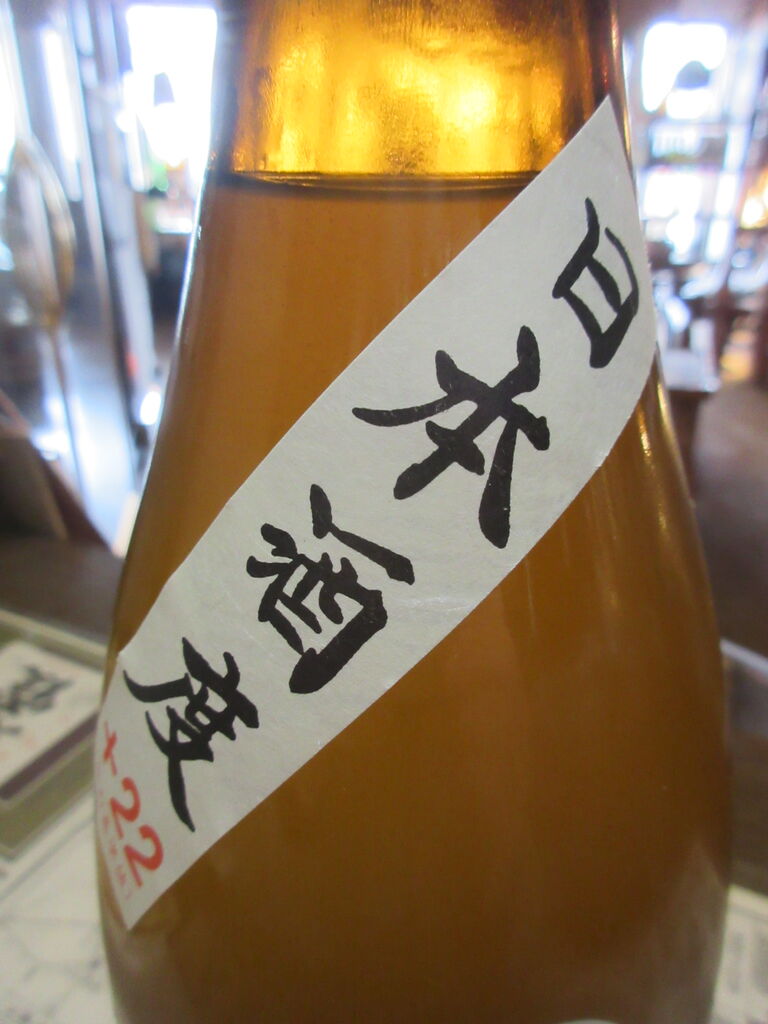 日本酒度
+22